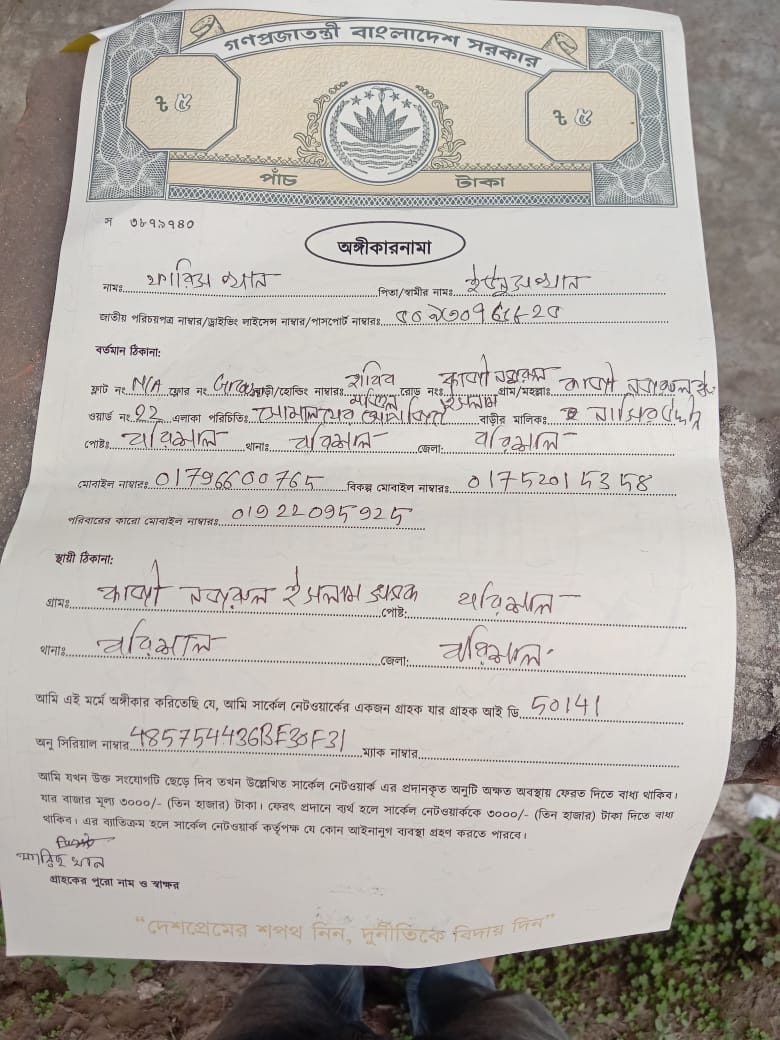 গণপ্রজাতন্ত্রী বাংলাদেশ সরকার
৳ ৫ ৳ ৫
পাঁচ টাকা
স ৩৮৭৯৭৪০
অঙ্গীকারনামা
নামঃ খান পিতা/স্বামীর নামঃ খান
জাতীয় পরিচয়পত্র নাম্বার/ড্রাইভিং লাইসেন্স নাম্বার/পাসপোর্ট নাম্বারঃ
বর্তমান ঠিকানা:
ফ্লাট নং N/A ফ্লোর নং বাড়ী/হোল্ডিং নাম্বারঃ রোড নংঃ কাজী নজরুল ইসলাম গ্রাম/মহল্লাঃ কাজী নজরুল
ওয়ার্ড নং 22 এলাকা পরিচিতিঃ বাড়ীর মালিকঃ
পোষ্টঃ বরিশাল থানাঃ বরিশাল জেলা: বরিশাল
মোবাইল নাম্বারঃ 01796600765 বিকল্প মোবাইল নাম্বারঃ 01752015358
পরিবারের কারো মোবাইল নাম্বারঃ 01922095925
স্থায়ী ঠিকানা:
গ্রামঃ কাজী নজরুল ইসলাম সড়ক পোষ্ট: বরিশাল
থানাঃ বরিশাল জেলা: বরিশাল
আমি এই মর্মে অঙ্গীকার করিতেছি যে, আমি সার্কেল নেটওয়ার্কের একজন গ্রাহক যার গ্রাহক আই ডি 50141
অনু সিরিয়াল নাম্বার 485754436BF30F31 ম্যাক নাম্বার
আমি যখন উক্ত সংযোগটি ছেড়ে দিব তখন উল্লেখিত সার্কেল নেটওয়ার্ক এর প্রদানকৃত অনুটি অক্ষত অবস্থায় ফেরত দিতে বাধ্য থাকিব।
যার বাজার মূল্য ৩০০০/- (তিন হাজার) টাকা। ফেরৎ প্রদানে ব্যর্থ হলে সার্কেল নেটওয়ার্ককে ৩০০০/- (তিন হাজার) টাকা দিতে বাধ্য
থাকিব। এর ব্যতিক্রম হলে সার্কেল নেটওয়ার্ক কর্তৃপক্ষ যে কোন আইনানুগ ব্যবস্থা গ্রহণ করতে পারবে।
খান
গ্রাহকের পুরো নাম ও স্বাক্ষর
"দেশপ্রেমের শপথ নিন, দুর্নীতিকে বিদায় দিন"